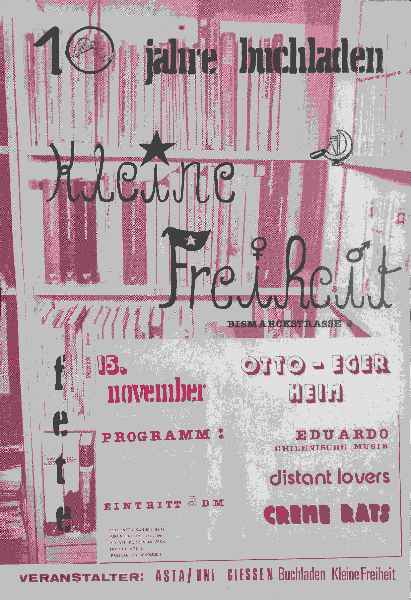 10 jahre buchladen
Kleine
Freiheit
BISMARCKSTRASSE
fete
15. november
OTTO - EGER
HEIM
PROGRAMM:
EDUARDO
CHILENISCHE MUSIK
distant lovers
CREME RATS
EINTRITT DM
VERANSTALTER: ASTA/UNI GIESSEN Buchladen Kleine Freiheit